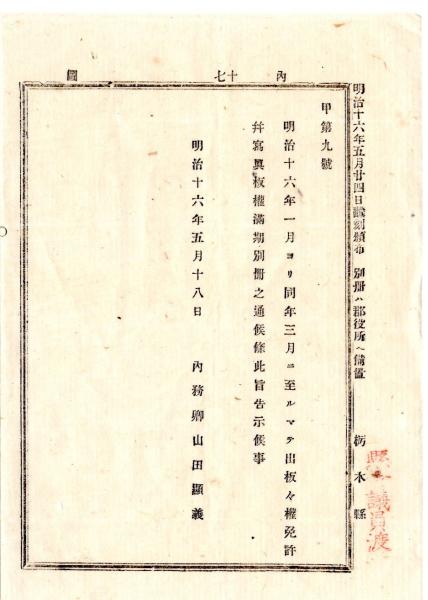 內 十七 圖
明治十六年五月廿四日飜刻頒布 別册ハ郡役所ヘ備置 栃木縣
縣會議員渡
甲第九號
明治十六年一月ヨリ同年三月ニ至ルマテ出板々權免許
幷寫眞板權滿期別册之通候條此旨告示候事
明治十六年五月十八日 內務卿山田顯義